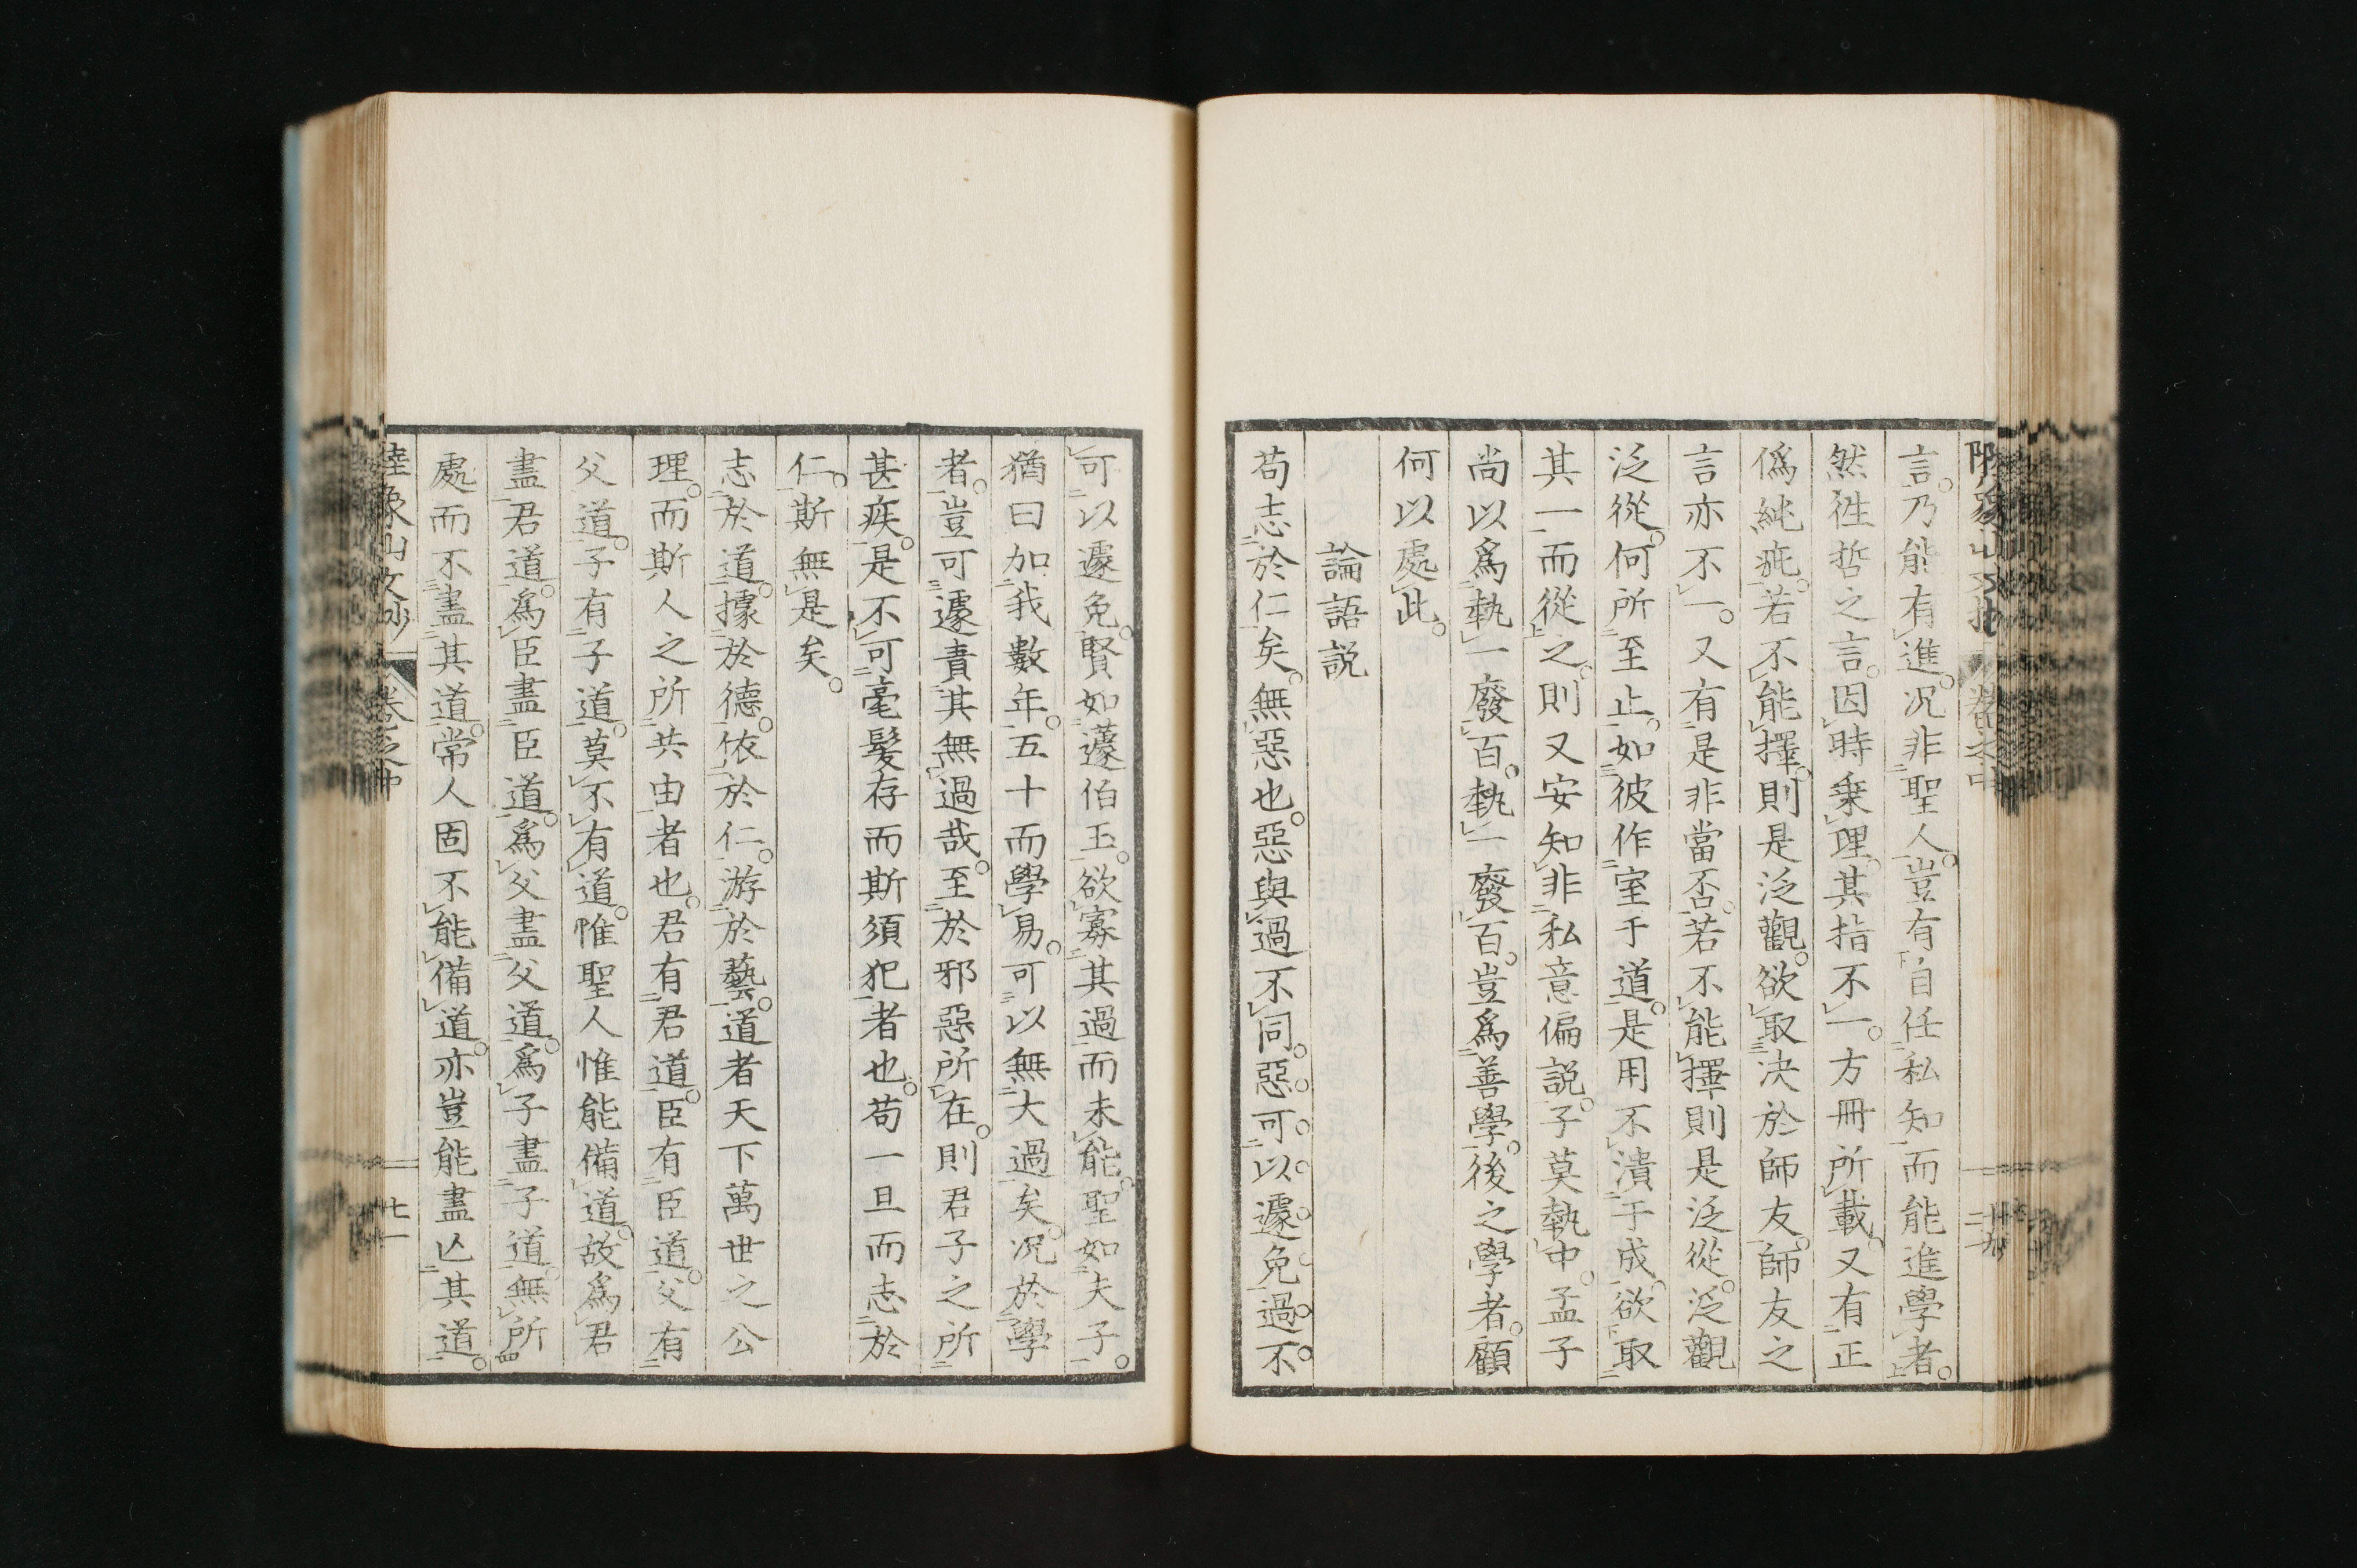 言。乃能有進。况非聖人。豈有自任私知而能進學者。
然徃哲之言。因時乗理。其指不一。方冊所載。又有正
僞純疵。若不能擇。則是泛觀。欲取决於師友。師友之
言亦不一。又有是非當否。若不能擇則是泛從。泛觀
泛從。何所至止。如彼作室于道。是用不潰于成。欲取
其一而從之。則又安知非私意偏説。子莫執中。孟子
尚以爲執一廢百。執一廢百。豈爲善學。後之學者。顧
何以處此。
論語説
苟志於仁矣。無惡也。惡與過不同。惡。可。以。遽。免。過。不。
可以遽免。賢如蘧伯玉。欲寡其過而未能。聖如夫子。
猶曰加我數年。五十而學易。可以無大過矣。况於學
者。豈可遽責其無過哉。至於邪惡所在。則君子之所
甚疾。是不可毫髮存而斯須犯者也。苟一旦而志於
仁。斯無是矣。
志於道。據於德。依於仁。游於藝。道者天下萬世之公
理。而斯人之所共由者也。君有君道。臣有臣道。父有
父道。子有子道。莫不有道。惟聖人惟能備道。故爲君
盡君道。爲臣盡臣道。爲父盡父道。爲子盡子道。無所
處而不盡其道。常人固不能備道。亦豈能盡亾其道。
陸象山文抄 卷之中 七一